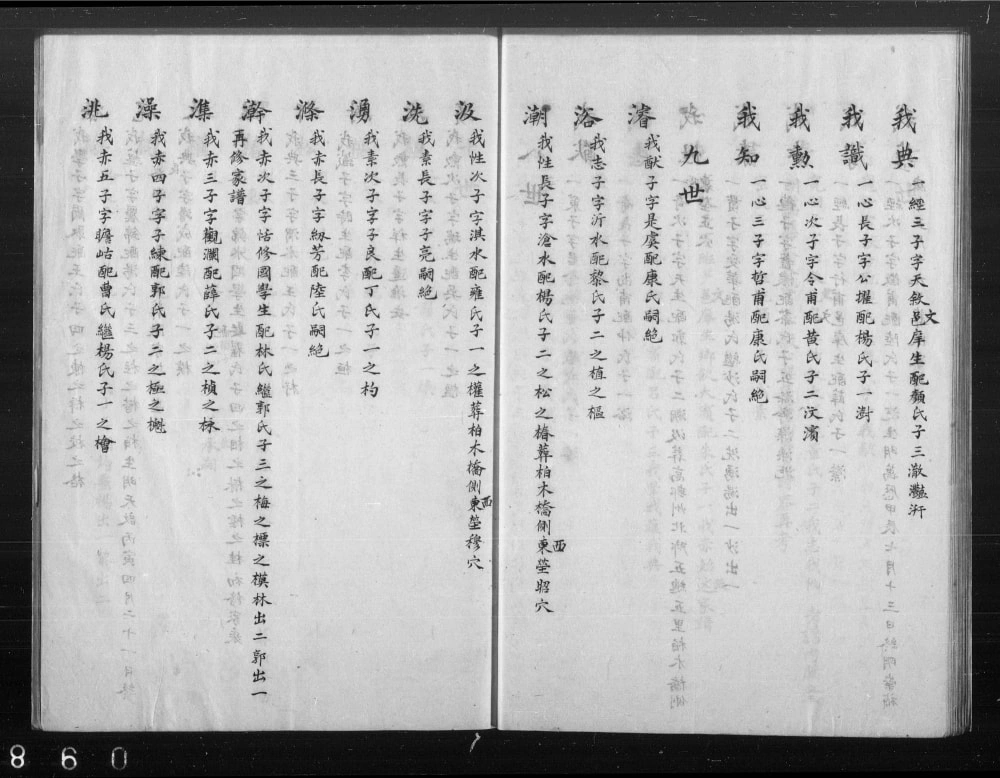 我典
一經三子字天敘邑庠生配顏氏子三澈灩汧
文
我識
一心長子字公擢配楊氏子一澍
我勲
一心次子字令甫配黃氏子二汶濱
我知
一心三子字哲甫配康氏嗣絕
九世
濬
我猷子字是虞配康氏嗣絕
洛
我志子字沂水配黎氏子二之植之樞
潮
我性長子字滄水配楊氏子二之松之椿葬柏木橋側東塋昭穴
西
汲
我性次子字淇水配雍氏子一之權葬柏木橋側東塋穆穴
西
洗
我素長子字子亮嗣絕
湧
我素次子字子良配丁氏子一之杓
滌
我赤長子字紉芳配陸氏嗣絕
澣
我赤次子字恬修國學生配林氏繼郭氏子三之梅之標之模林出二郭出一
再修家譜
潗
我赤三子字觀瀾配薛氏子二之楨之栐
澡
我赤四子字子練配郭氏子二之極之
洮
我赤五子字瞻岵配曹氏繼楊氏子一之檜
860